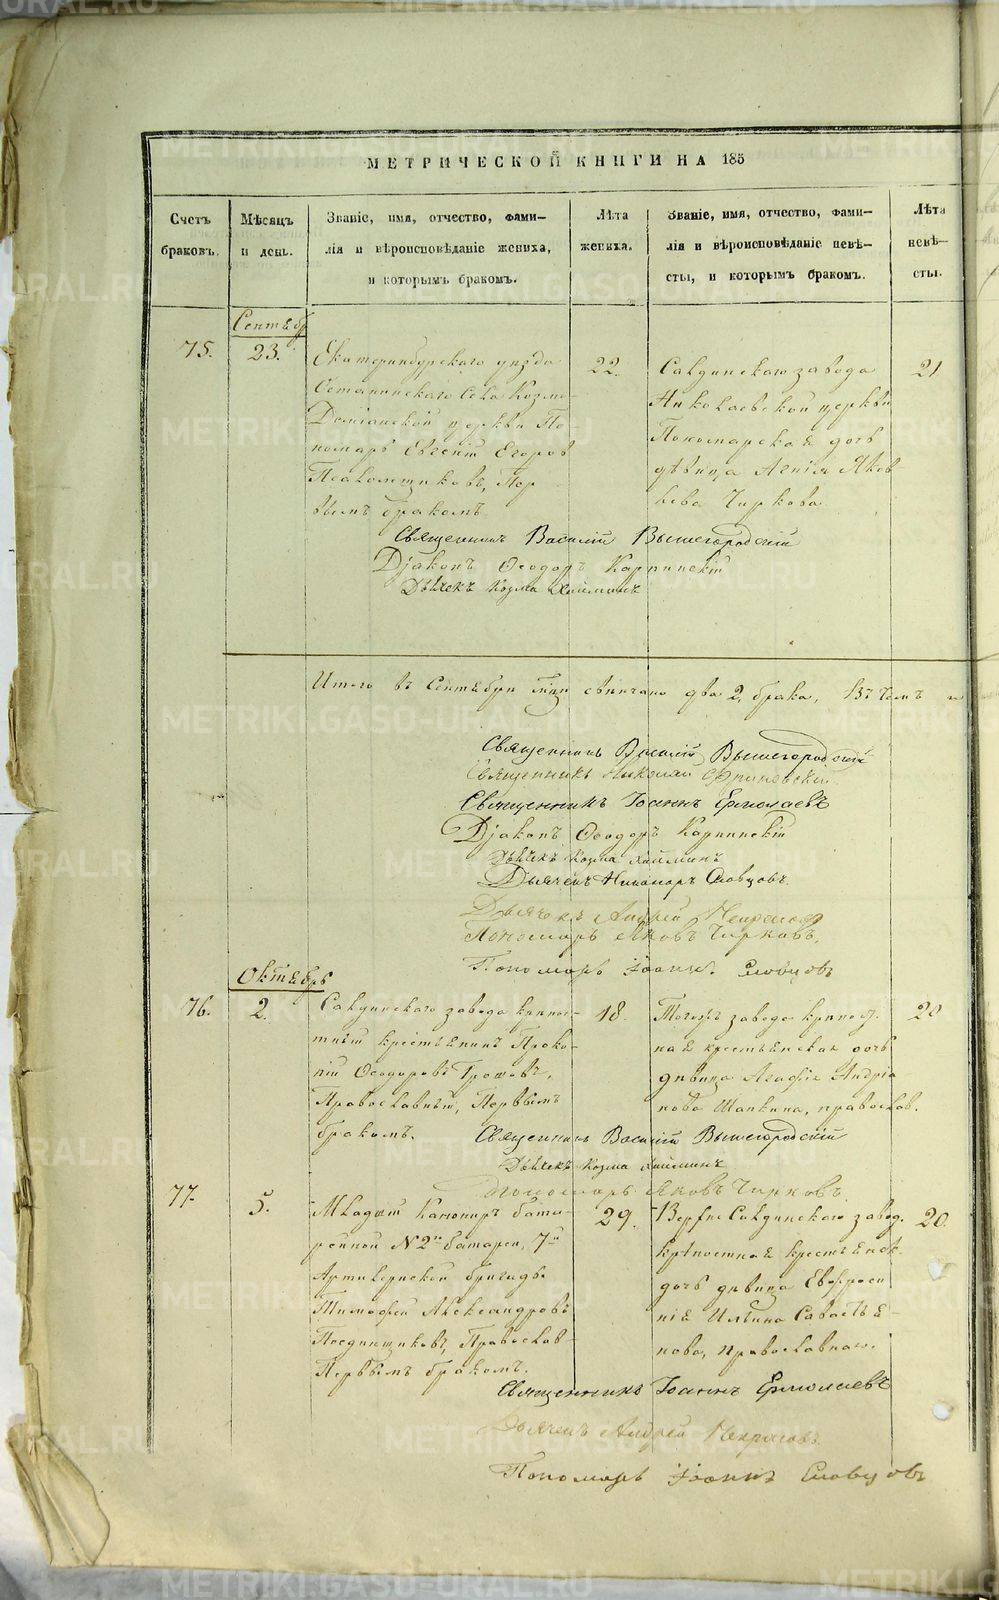 МЕТРИЧЕСКОЙ КНИГИ НА 185
Счетъ браковъ.
Мѣсяцъ и день.
Званіе, имя, отчество, фами-
лія и вѣроисповѣданіе жениха,
и которымъ бракомъ.
Лѣта жениха.
Званіе, имя, отчество, фами-
лія и вѣроисповѣданіе невѣ-
сты, и которымъ бракомъ.
Лѣта невѣ-
сты.
Сентябр
75.
23.
Екатеринбургскаго уѣзда
Козмо-
Даміанской церкви По-
номарь Евгеній Егоровъ
Пер
вымъ бракомъ
22.
Салдинскаго завода
Николаевской церкви
Пономарская дочь
дѣвица Агнія Яков
лева Чиркова
21
Священникъ Василій Вышегородскій
Діаконъ Ѳеодоръ Карпинскій
Дьячекъ Козма
Итого въ Сентябри свѣнчано два 2, брака, въ чемъ и
Священникъ Василій Вышегородскій
Священникъ Николай
Священникъ Іоаннъ Ермолаевъ
Діаконъ Ѳеодоръ Карпинскій
Дьячекъ Козма
Дьячекъ Никаноръ Словцовъ.
Дьячекъ Андрей Некрасовъ
Пономарь Яковъ Чирковъ.
Пономарь Іоаннъ Словцовъ
Октябрь
76.
2.
Салдинскаго завода крѣпос-
тный крестьянинъ Проко-
пій Ѳеодоровъ
Православный, Первымъ
бракомъ.
18.
Тогожъ завода крѣпост.
ная крестьянская дочь
дѣвица Агафія Андріа
нова Шапкина, православ.
20
Священникъ Василій Вышегородскій
Дьячекъ Козма
Пономарь Яковъ Чирковъ
77.
5.
Младшій Канониръ бата-
рейной № 2й батареи, 7й
Артилерійской бригады
Тимофей Александровъ
Православ-
Первымъ бракомъ.
29.
Верхне Салдинскаго завод.
крѣпостная крестьянск.
дочь дѣвица Евфроси
нія Ильина Савастья-
нова, православная.
20.
Священникъ Іоаннъ Ермолаевъ
Дьячекъ Андрей Некрасовъ
Пономарь Іоаннъ Словцовъ
METRIKI.GASO-URAL.RU